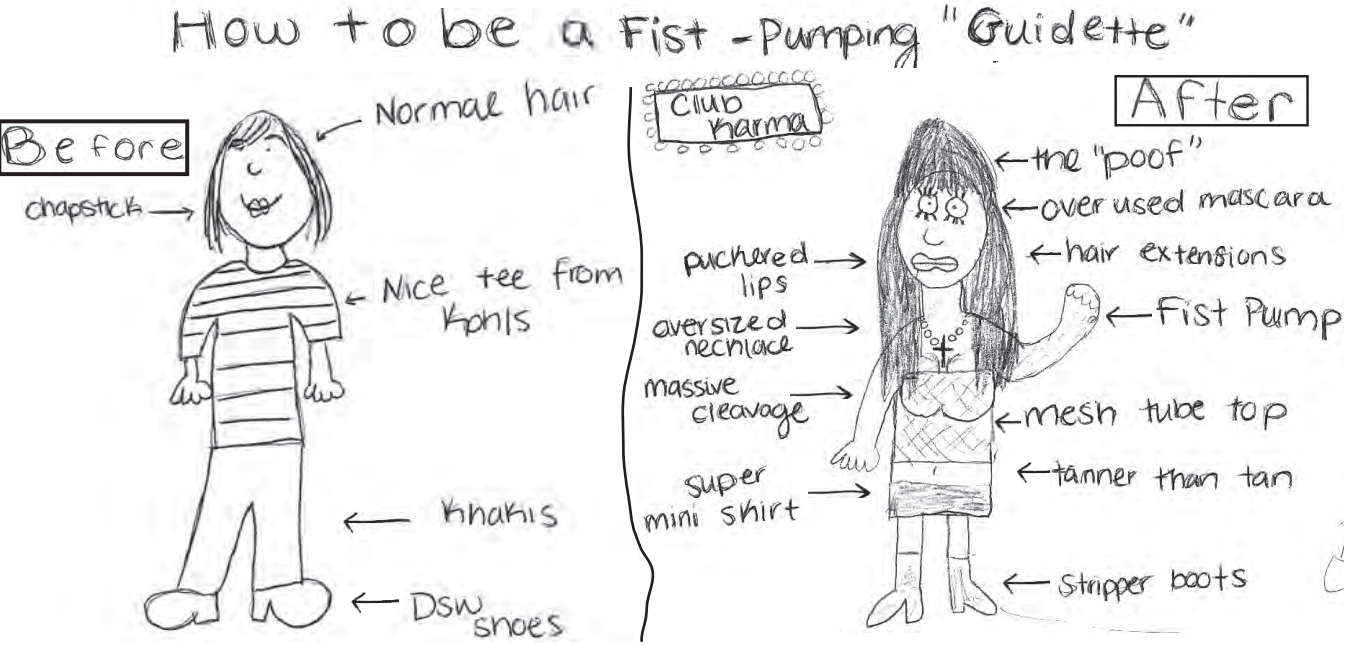 How to be a Fist-Pumping "Guidette"
Before
Normal hair
chapstick
Nice tee from
Kohls
Khakis
DSW
shoes
Club
Karma
After
the "poof"
over used mascara
hair extensions
Fist Pump
mesh tube top
tanner than tan
stripper boots
puckered
lips
oversized
necklace
massive
cleavage
super
mini skirt